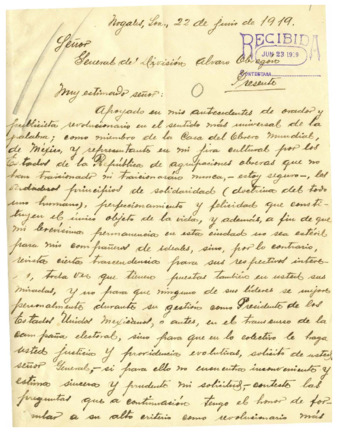 Nogales, Son., 22 de junio de 1919.
RECIBIDA
JUN 23 1919
Señor
General de División Alvaro Obregón
Presente
Muy estimado señor:
Apoyado en mis antecedentes de orador y
publicista revolucionario en el sentido más universal de la
palabra; como miembro de la Casa del Obrero Mundial,
de Méjico, y representante en mi jira cultural por los
Estados de la República de agrupaciones obreras que no
han traicionado ni traicionarán nunca,- estoy seguro-, los
principios de solidaridad (doctrina del todo
uno humano), perfeccionamiento y felicidad que consti-
tuyen el único objeto de la vida, y además, a fin de que
mi brevísima permanencia en esta ciudad no sea estéril
para mis compañeros de ideales, sino, por lo contrario,
revista cierta trascendencia para sus respectivos intere-
, toda vez que tienen puestas también en usted sus
miradas, y no para que ninguno de sus líderes se mejore
personalmente durante su gestión como Presidente de los
Estados Unidos Mejicanos, o antes, en el transcurso de la
campaña electoral, sino para que en lo colectivo le haga
usted justicia y providencia evolutiva, solicito de usted
señor General,- si para ello no encuentra inconveniente y
estima sincera y prudente mi solicitud,- conteste las
preguntas que a continuación tengo el honor de for-
mular a su alto criterio como revolucionario más